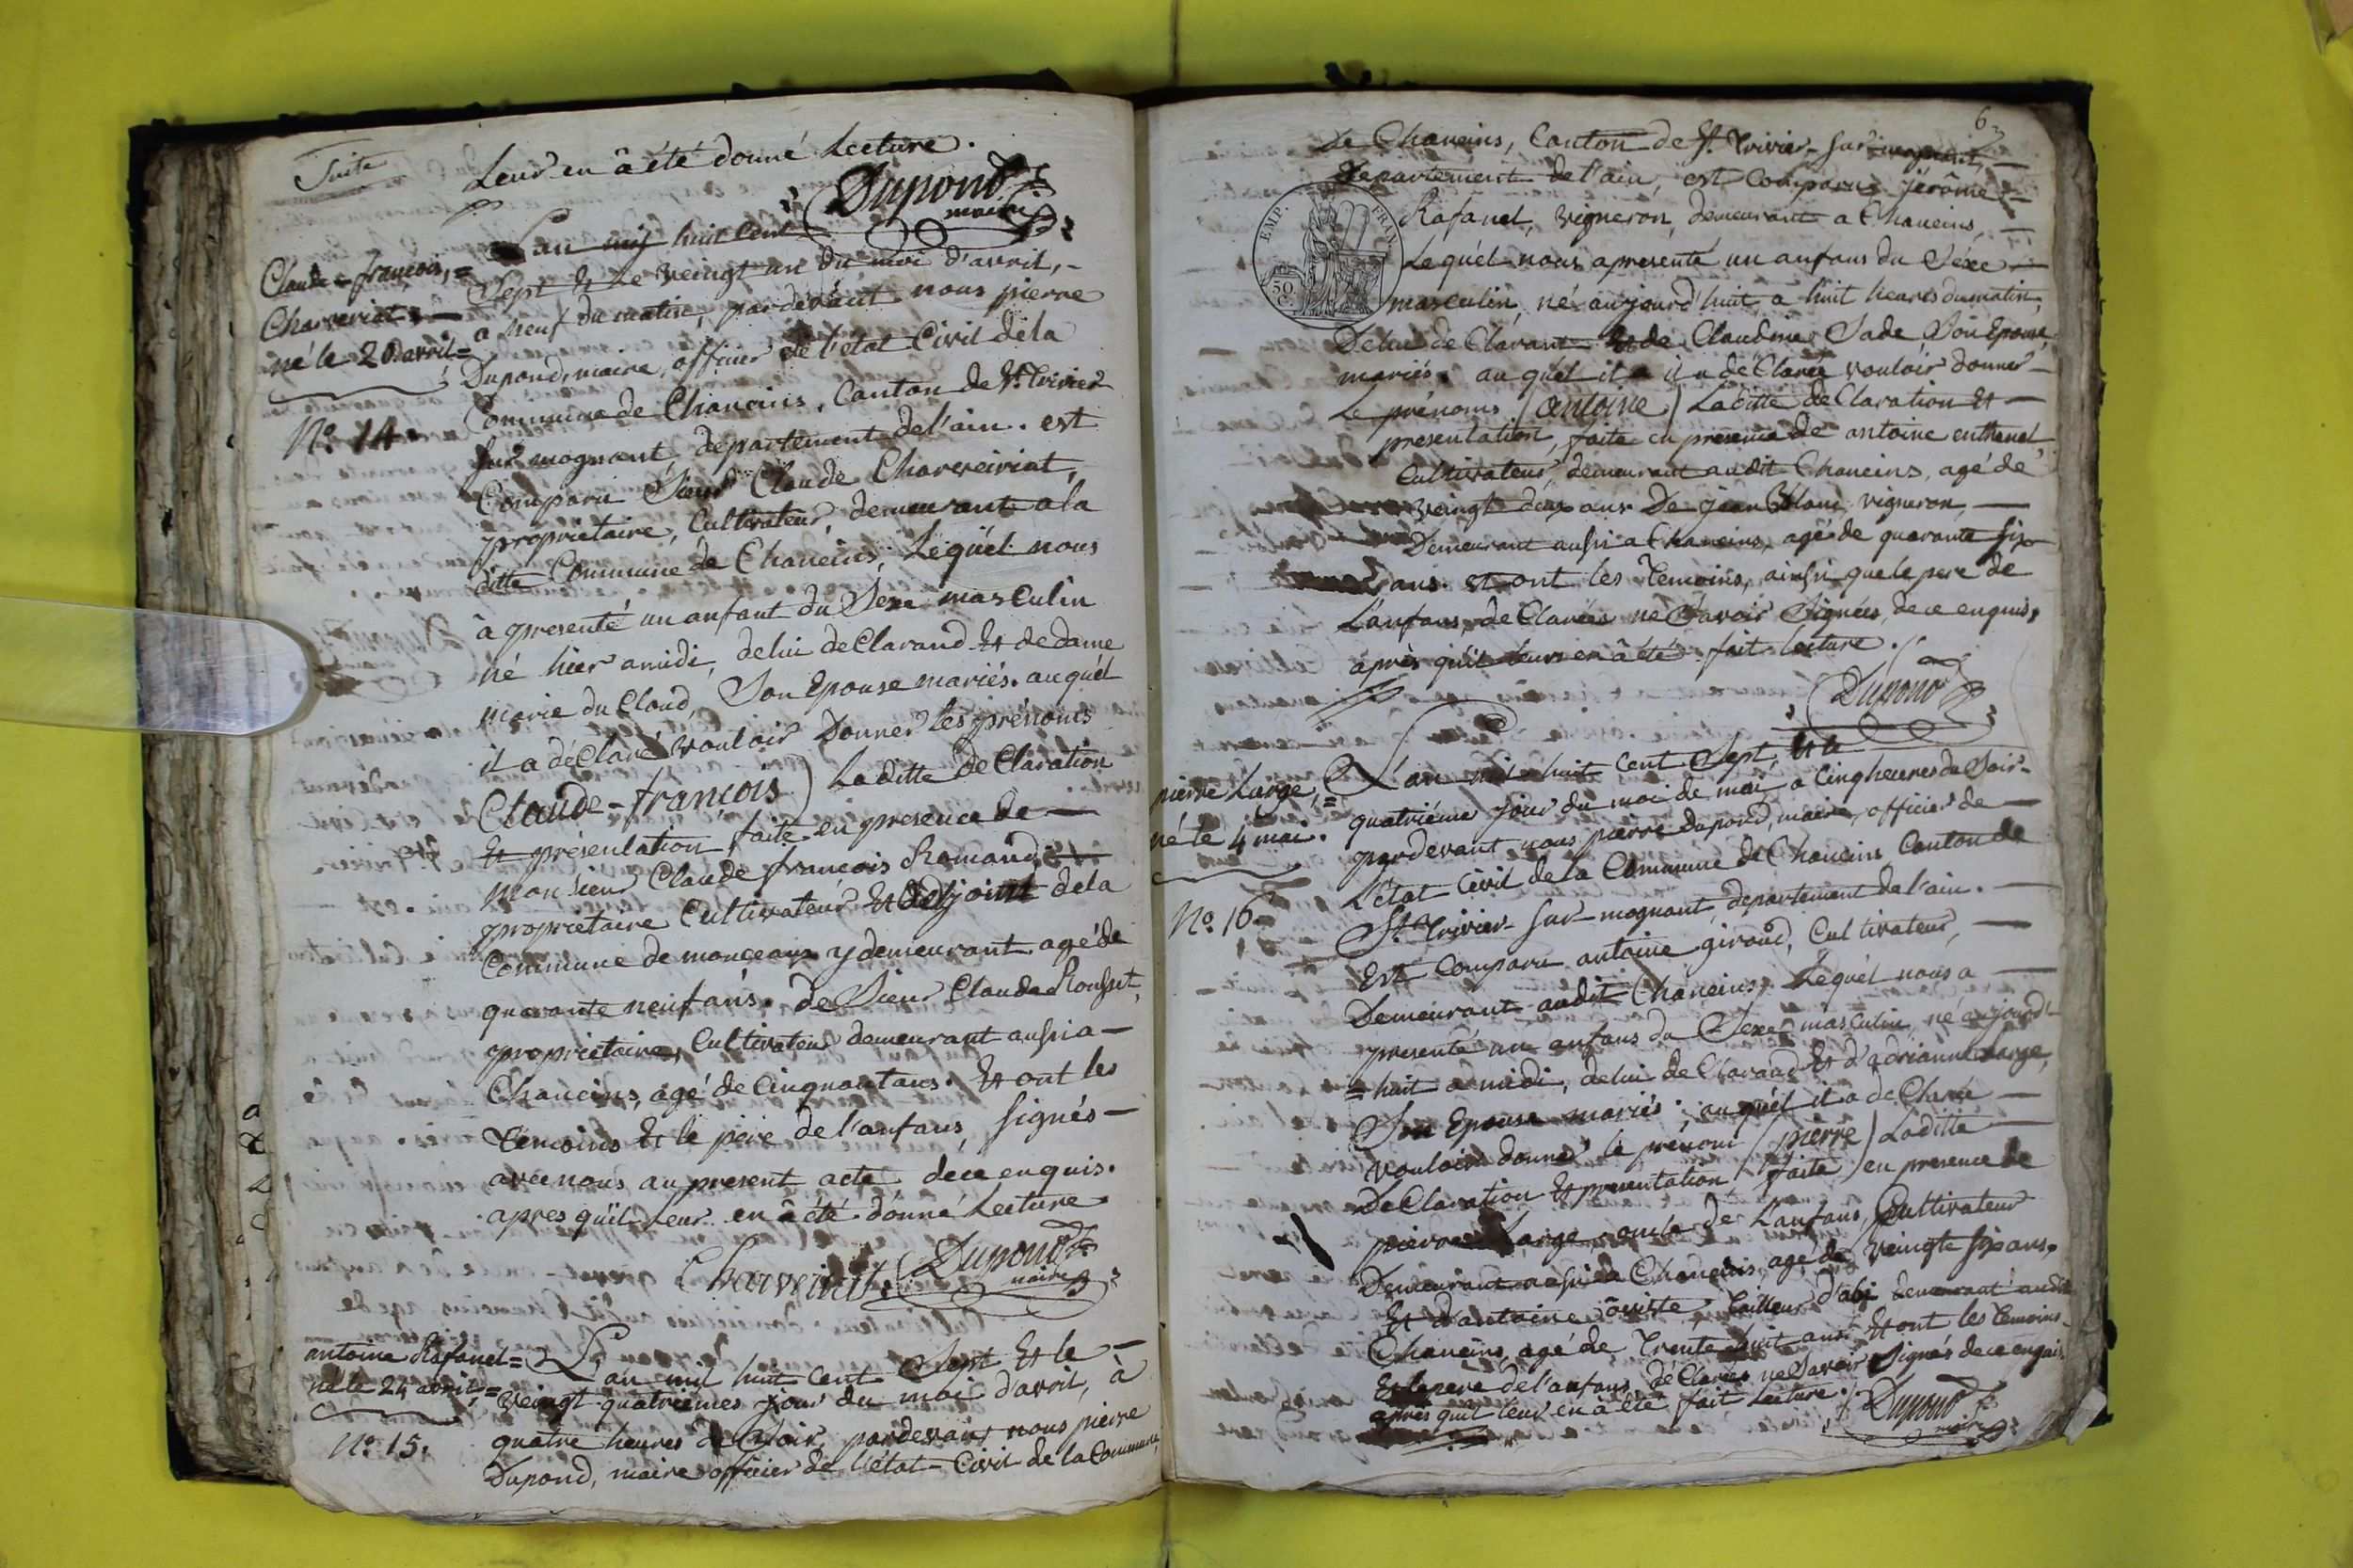 Suite
Leur en â été donné Lecture.
Dupond
maire
L'an mil huit Cent
Claude-françois,=
Charveriat =
né le 20 avril=
N.º 14.
Sept & Le veingt un du moi d'avril, -
a neuf du matin, pardevant nous pierre
Dupond, maire, officier de l'état Civil de la
Commune de Chaneins, Canton de St. Trivier
sur mognant, departement de l'ain. est
Comparu Sieur Claude Charveiriat,
propriétaire, Cultivateur, demeurant a la
ditte Commune de Chaneins, Lequel nous
à presenté un anfant du Sexe masculin
né hier amidi, de lui deClarand & de dame
marie du Cloud, Son Epouse mariés. au quél
il a déClaré vouloir Donner les prénoms
Claude-françois) La ditte deClaration
& présentation, faite en presence de —
Monsieur Claude françois Romand, —
propriétaire Cultivateur & adjoint de la
Commune de monçeaux y demeurant agé de
quarante neuf ans. de Sieur Claude
propriétaire, Cultivateur demeurant aussi a —
Chaneins, agé de Cinquant ans. & ont les
témoins & le père de l'anfans, signés —
avec nous au present acte de ce enquis.
apres quil Leur en â été donné Lecture
Charveiriat. Dupond
maire
antoine Rafanel=
né le 24 avril,=
N.º 15.
L'an mil huit Cent Sept & le —
Veingt quatriémes jour du moi d'avril, à
quatre heures de Soir, pardevant nous pierre
Dupond, maire officier de l'état-Civil de la Commune
6
de Chaneins, Canton de St. Trivier-sur mognant, —
Departement de l'ain, est Comparu jérôme —
EMP. FRAN.
50
C.
Rafanel, vigneron, demeurant a Chaneins, —
Lequél nous a presenté un anfans du Séxe —
masculin, né aujourd'huit a huit heures du matin,
De lui de Clarant & de Claudine Sade Son Epouse,
mariés. au quél il a déClarée vouloir donner —
Le prénoms (antoine) La ditte deClaration & —
presentation, faite en presence de antoine
Cultivateur, demeurant au dit Chaneins, agé de
veingt deux ans De jean Blanc vigneron, —
Demeurant aussi a Chaneins, agé de quarante six
ans. & ont les Temoins, ainsi que le pere de
L'anfans, de Clarées ne Savoir Signées, de ce enquis,
après quil leurs en â été fait lecture.
Dupond
pierre Large,=
né le 4 mai.
N.º 16.
L'an mil huit Cent Sept, & le
quatriéme jour du moi de mai a Cinq heures du Soir-
pardevant nous pierre dupond, maire, officier de —
L'état Civil de la Commune de Chaneins Canton de
St. Trivier-sur-mognant, departement de l'ain. —
Est Comparu antoine giroud, Cultivateur, —
Demeurant au dit Chaneins, Lequél nous a —
presenté un anfans du Sexe masculin, né aujourd'
=huit a midi, de lui deClarand & d'adrianne Large,
Son Epouse mariés. au quél il a deClaré —
vouloir donner le prénom (pierre) La ditte —
DeClaration & presentation, faite en presence de
pierre Large, oncle de L'anfans, Cultivateur
Demeurant aussi a Chaneins, agé de Veingt Six ans.
Et d'antoine tailleur d'abi demeurant au dit
Chaneins, agé de Trente huit ans. & ont les Temoins
& le pere de l'anfans, déClarées ne Savoir Signés de ce enquis.
apres quil leur en â été fait lecture.
Dupond
maire